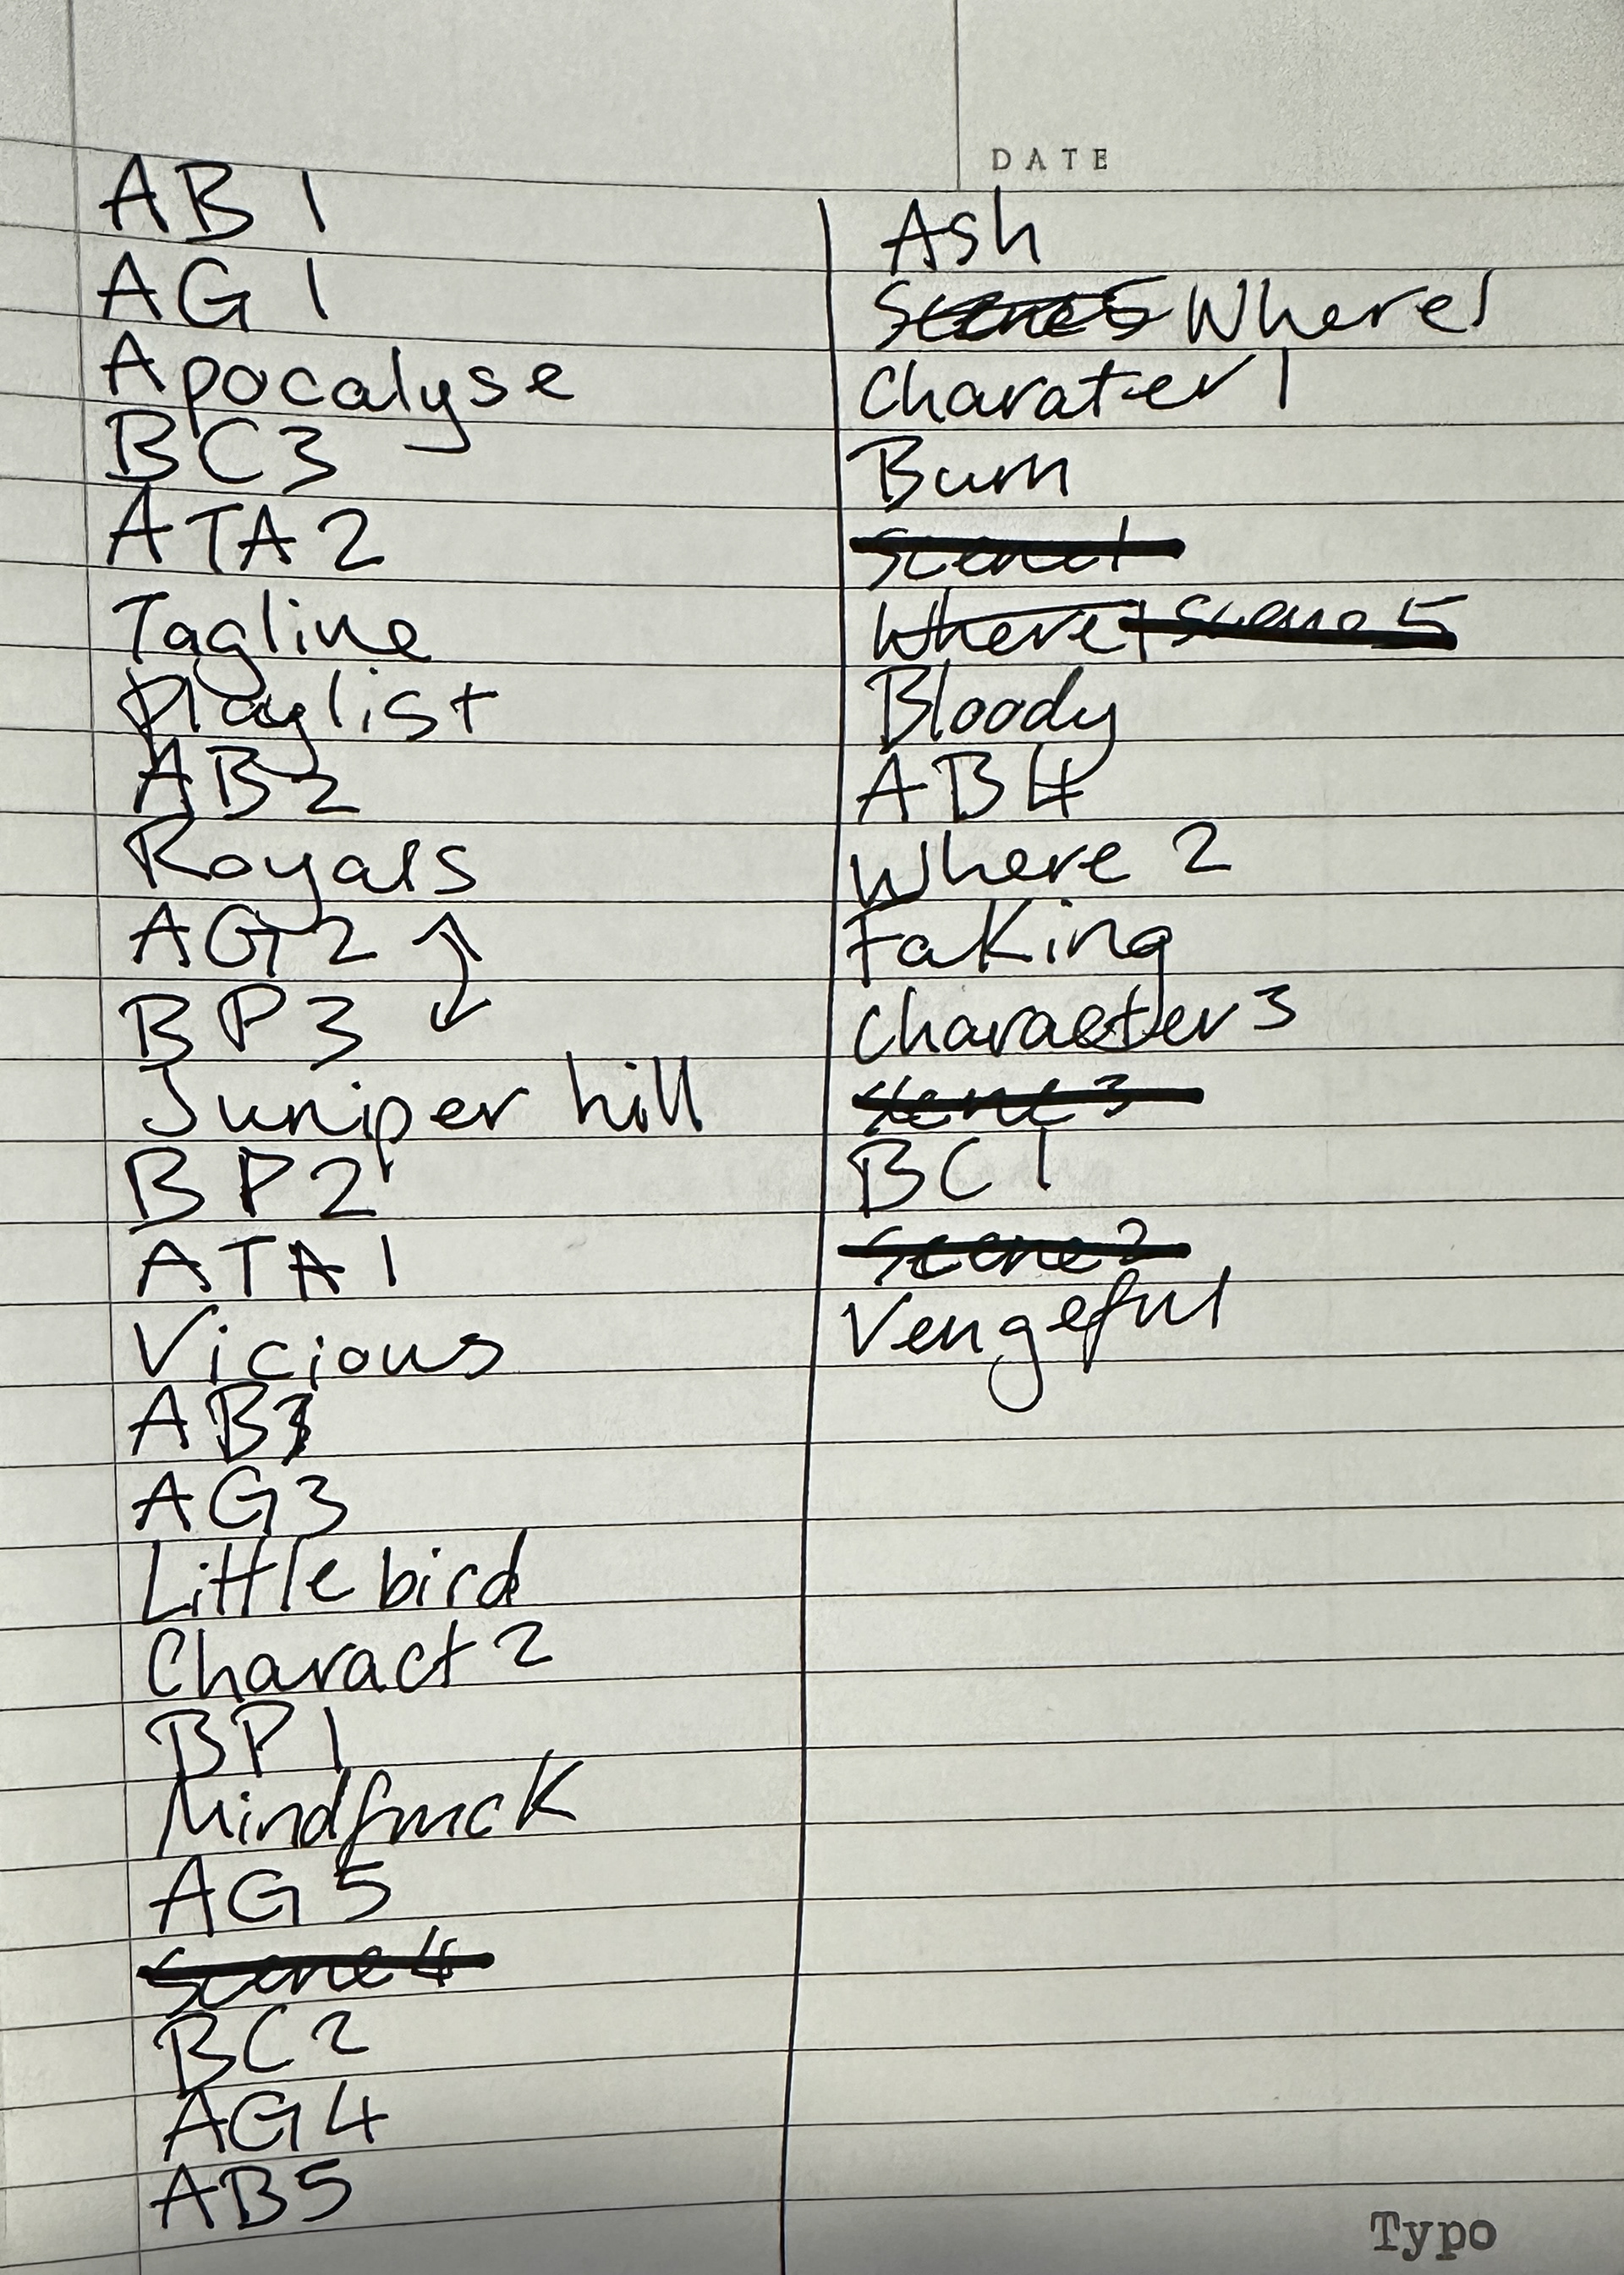 DATE
AB 1
AG 1
Apocalyse
BC3
ATA 2
Tagline
Playlist
AB2
Royals
AG2
BP3
Juniper hill
BP2
ATA 1
Vicious
AB3
AG3
Little bird
Charact 2
BP1
Mindfuck
AG5
Scene 4
BC2
AG4
AB5
Ash
Scene5 Where1
Charater 1
Burn
Scene1
Where1 scene 5
Bloody
AB4
Where 2
Faking
Character 3
Scene 3
BC 1
Scene 2
Vengeful
Typo